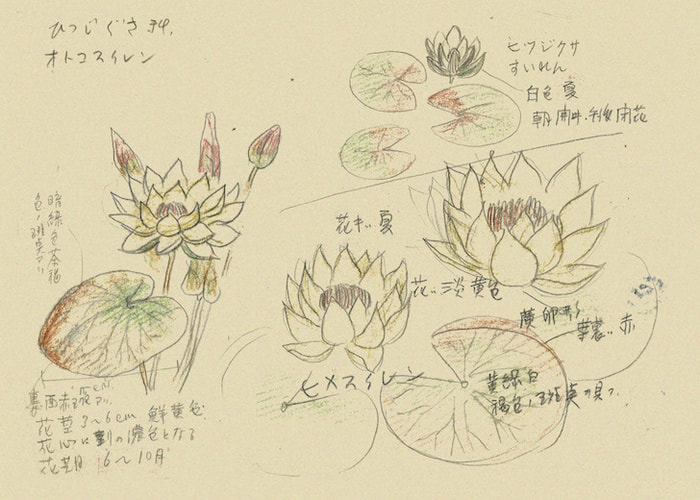 ひつじぐさ科
オトコスイレン
ヒツジクサ
すいれん
白色 夏
朝開キ、午後閉花
暗緑色茶褐
色ノ斑点アリ
花キ 夏
花ハ淡黄色
ヒメスイレン
広卵形
葉裏ハ赤
黄緑白
褐色ノ斑点ヲ具フ
裏面赤
花茎 3〜6cm 鮮黄色
花心に 濃色となる
花期 6〜10月